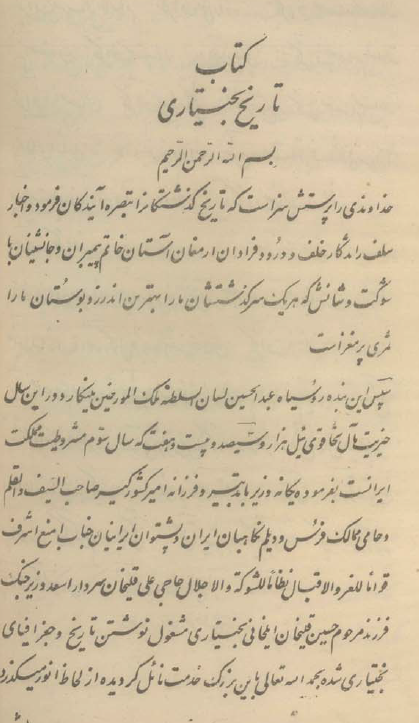 کتاب
تاریخ بختیاری
بسم الله الرحمن الرحیم
خداوندی را پرستش سزاست که تاریخ گذشتگانرا تبصره آیندگان فرمود و اخبار
سلف را مدگار خلف و درود فراوان ارمغان آستان خاتم پیمبران و جانشینان با
شوکت و شانش که هر یک سرگذشتشان ما را بهترین اندرز و بوستان ما را
ثمری پر مغز است
سپس این بنده روسیاه عبدالحسین لسان السلطنه ملک المورخین مینگارد در این سال
خیریت مآل تخاقوی ئیل هزار و سیصد و بیست و هفت که سال سوم مشروطیت مملکت
ایرانست بفرموده یگانه وزیر با تدبیر و فرزانه امیر کشور گیر صاحب السیف و القلم
و حامی ممالک فرس و دیلم نگاهبان ایران و پشتوان ایرانیان جناب امنع اشرف
قواما للعز و الاقبال نظاماً للشوکة و الاجلال حاجی علی قلیخان سردار اسعد وزیر جنگ
فرزند مرحوم حسین قلیخان ایلخانی بختیاری مشغول نوشتن تاریخ و جغرافیای
بختیاری شده بحمد الله تعالی باین بزرگ خدمت نائل گردیده از لحاظ انور میگذرد